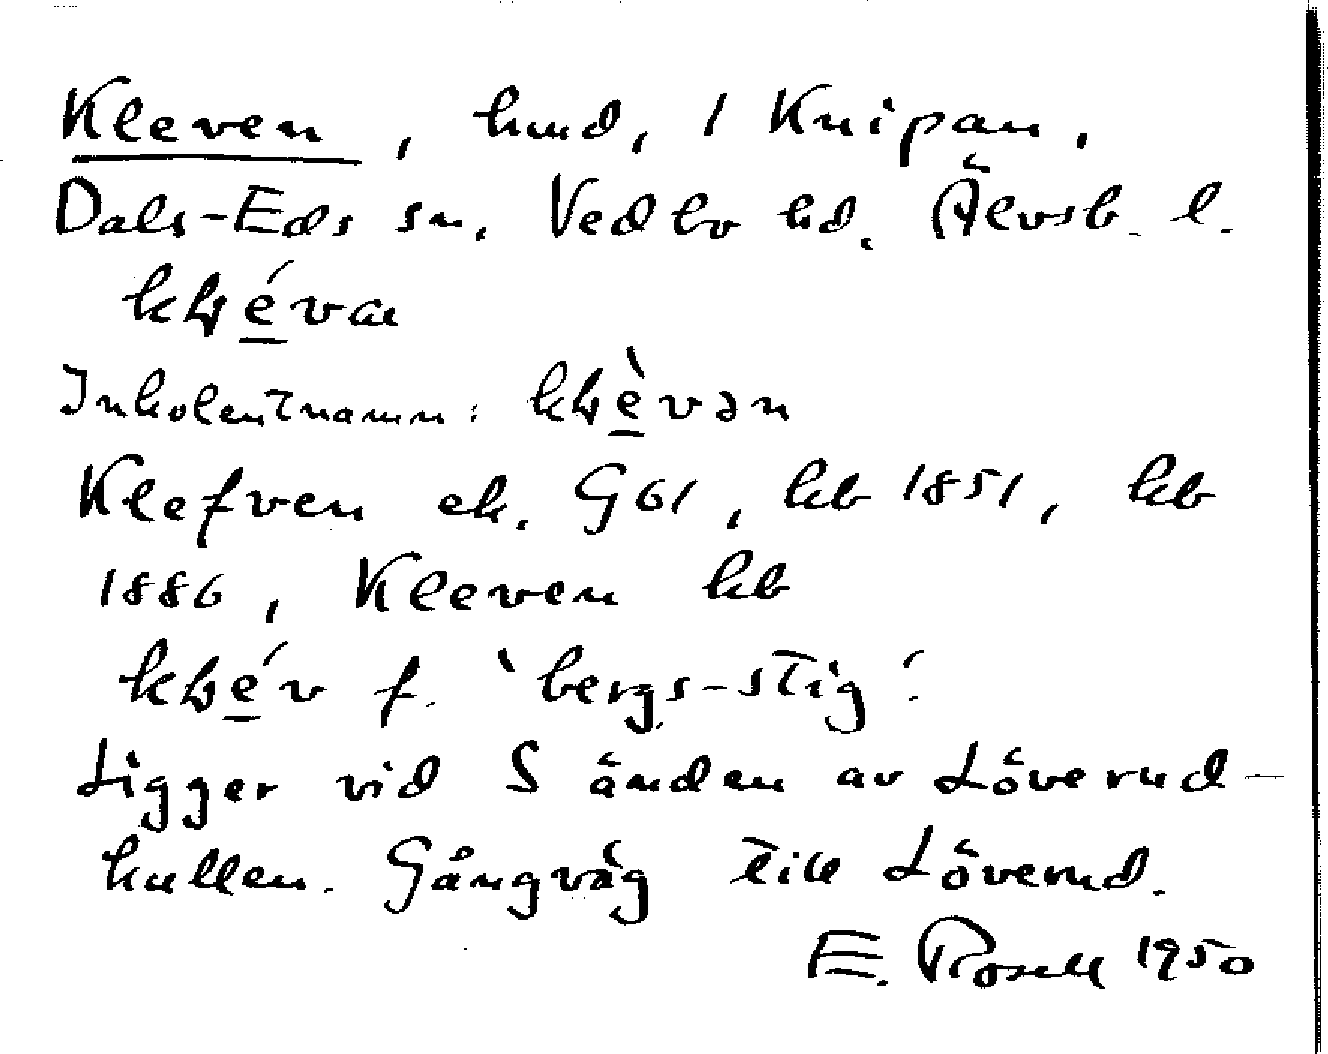 Kleven, hmd, 1 Knipan.
Dals-Eds sn. Vedbo hd. Älvsb. l.
kḷe̱´van
Inkolentnamn: kḷe̱`vən
Klefven ek. G61, kb 1851, kb
1886, Kleven kb
kḷe̱´v f. 'bergs-stig'.
Ligger vid S änden av Löverud-
kullen. Gångväg till Löverud.
E. Rosell 1950